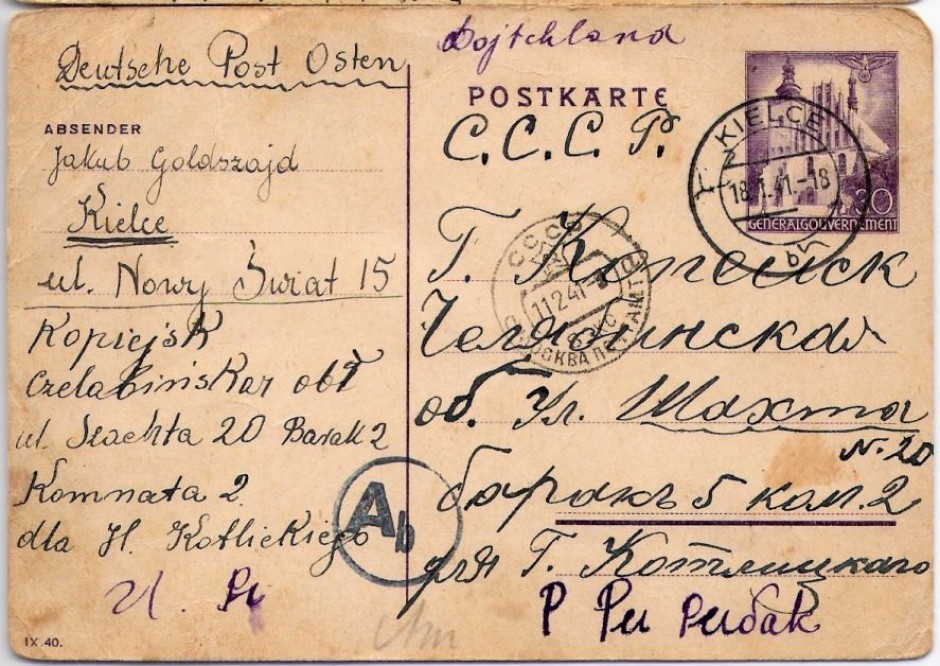 Dojtchland
Deutsche Post Osten
POSTKARTE
ABSENDER
Jakub Goldszajd
Kielce
ul. Nowy Świat 15
Kopiejsk
Czelabińskar obł
ul. Szachta 20 Barak 2
Komnata 2.
dla H. Kotlickiego
С.С.С.Р.
Г. Копейск
Челябинская
об. Ул. Шахта
N. 20
баракъ 5 ком. 2
для Г. Котлицкаго
KIELCE
18.1.41.-18
30
GENERALGOUVERNEMENT
СССР
11 2 41
МОСКВА ПОЧТАМТ
Ab
IX. 40.